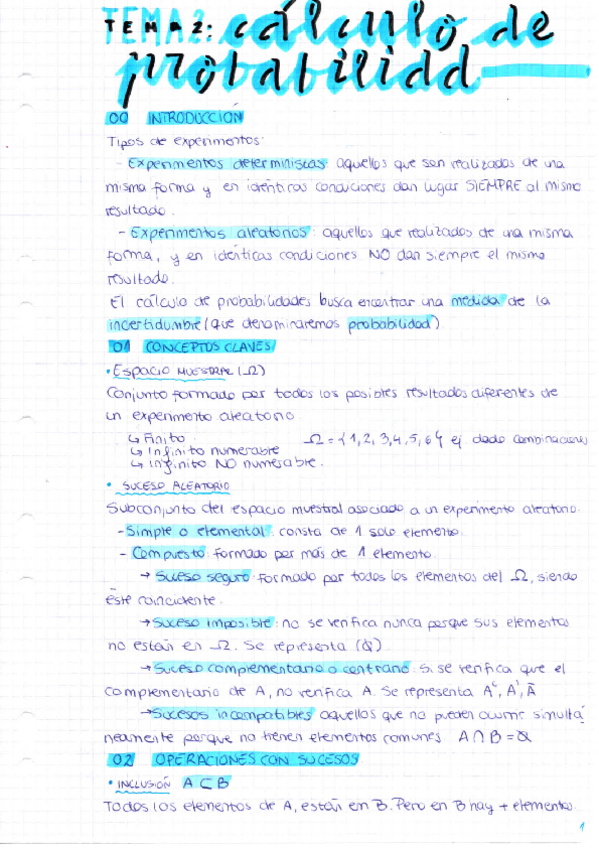 TEMA 2: cálculo de
probabilidad
00 INTRODUCCIÓN
Tipos de experimentos:
- Experimentos determinísticos: aquellos que son realizados de una
misma forma y en idénticas condiciones dan lugar SIEMPRE al mismo
resultado.
- Experimentos aleatorios: aquellos que realizados de una misma
forma, y en idénticas condiciones NO dan siempre el mismo
resultado.
El cálculo de probabilidades busca encontrar una medida de la
incertidumbre (que denominaremos probabilidad)
01 CONCEPTOS CLAVES
• ESPACIO MUESTRAL (Ω)
Conjunto formado por todos los posibles resultados diferentes de
un experimento aleatorio
↳ Finito Ω = {1, 2, 3, 4, 5, 6} ej dado combinaciones
↳ Infinito numerable
↳ Infinito NO numerable.
• SUCESO ALEATORIO
Subconjunto del espacio muestral asociado a un experimento aleatorio.
- Simple o elemental: consta de 1 solo elemento.
- Compuesto: formado por más de 1 elemento.
→ Suceso seguro: formado por todos los elementos del Ω, siendo
éste coincidente.
→ Suceso imposible: no se verifica nunca porque sus elementos
no están en Ω. Se representa (∅)
→ Suceso complementario o contrario: si se verifica que el
complementario de A, no verifica A. Se representa Aᶜ, A', Ā
→ Sucesos incompatibles aquellos que no pueden ocurrir simultá
neamente porque no tienen elementos comunes A ∩ B = ∅
02 OPERACIONES CON SUCESOS
• INCLUSIÓN A ⊂ B
Todos los elementos de A, están en B. Pero en B hay + elementos.
1